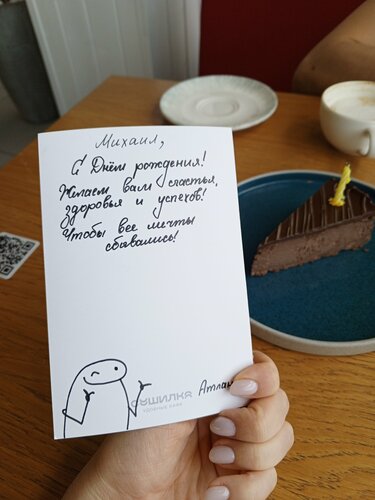 Михаил,
С Днём рождения!
Желаем вам счастья,
здоровья и успехов!
Чтобы все мечты
сбывались!
СУШИЛКА